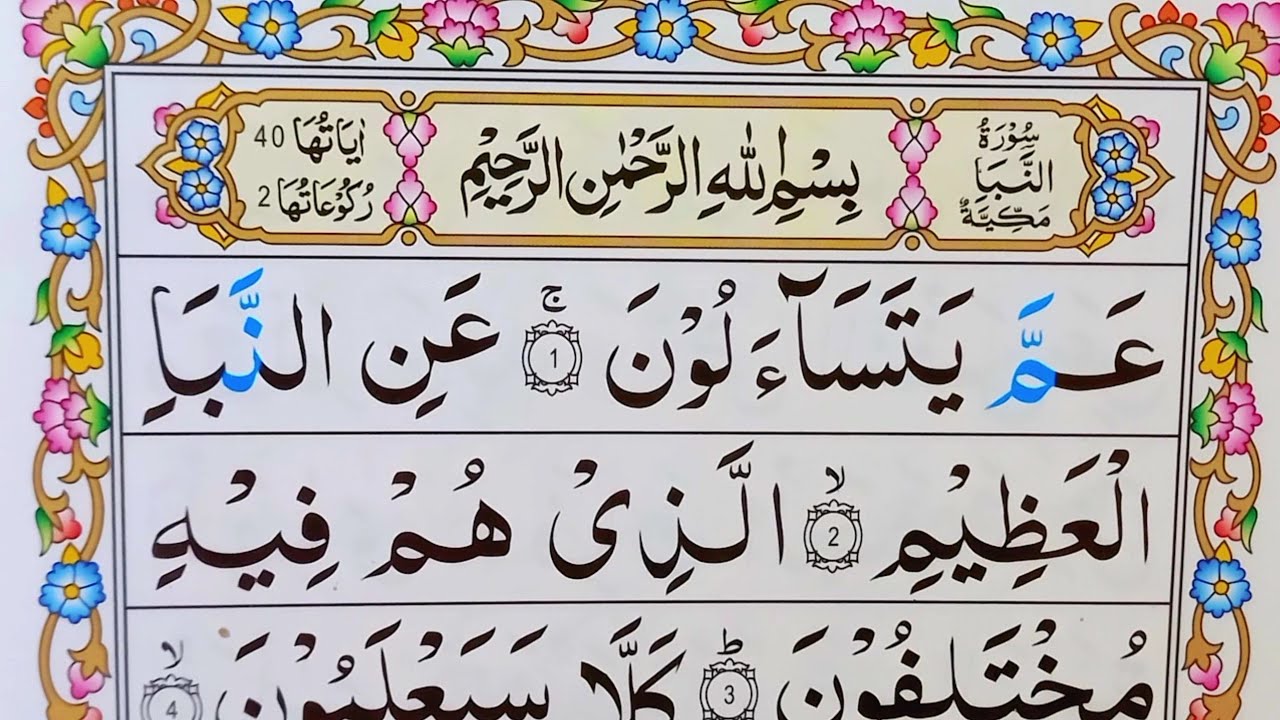 سُوْرَةُ
النَّبَاِ
مَكِّيَّةٌ
بِسْمِ اللّٰهِ الرَّحْمٰنِ الرَّحِيْمِ
اٰيَاتُهَا 40
رُكُوْعَاتُهَا 2
عَمَّ يَتَسَآءَلُوْنَ ۚ 1 عَنِ النَّبَاِ
الْعَظِيْمِ ۙ 2 الَّذِیْ هُمْ فِيْهِ
مُخْتَلِفُوْنَ ؕ 3 كَلَّا سَيَعْلَمُوْنَ ۙ 4